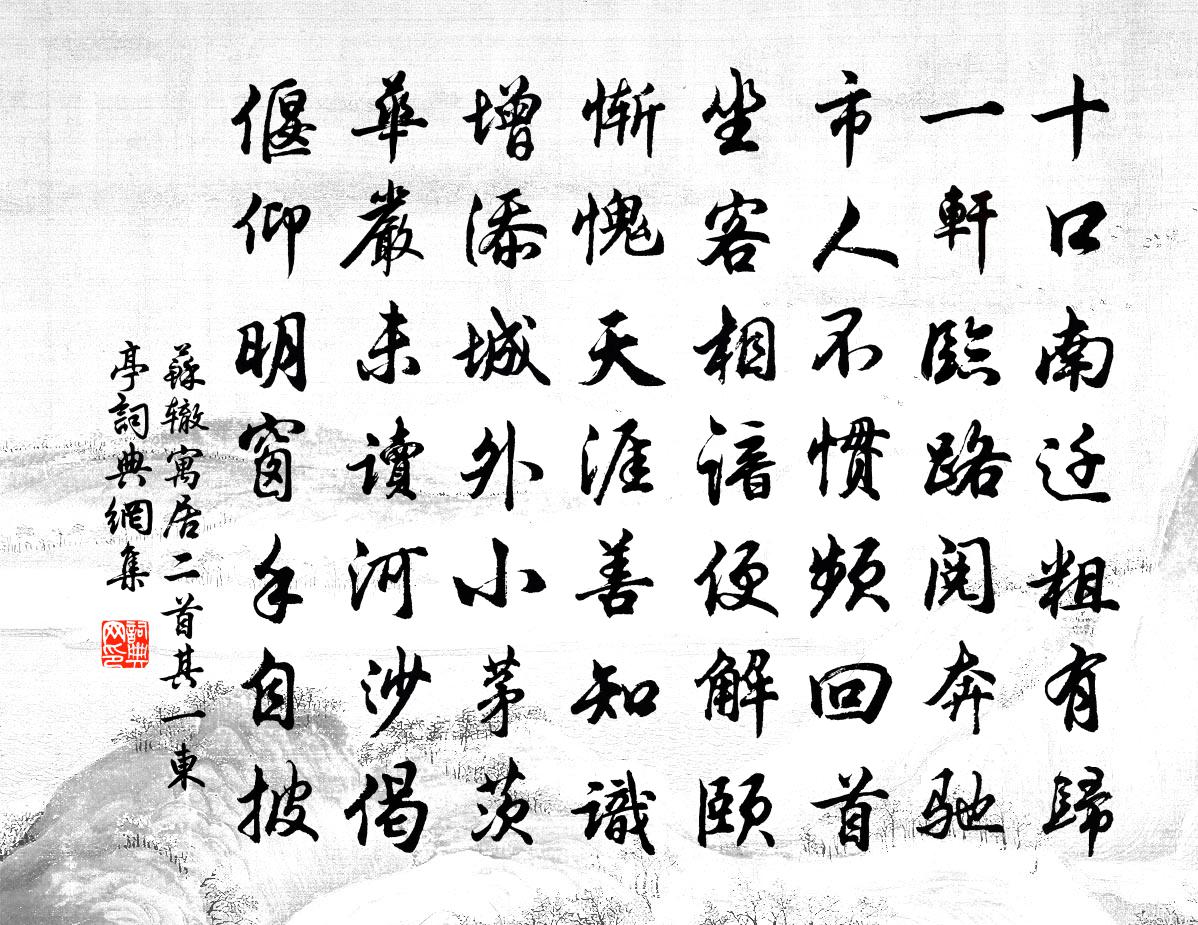 十口南迁粗有歸
一軒臨路閱奔馳
市人不慣頻回首
坐客相諳便解頤
慚愧天涯善知識
增添城外小茅茨
華嚴未讀河沙偈
偃仰明窗手自披
蘇轍寓居二首其一東
亭詞典網集
詞典
网印